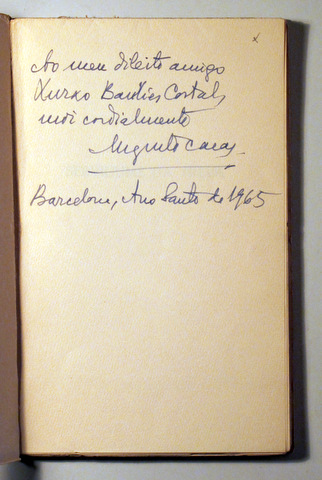 x
Ao meu dileito amigo
Xurxo Bauliés Cortal,
moi cordialmente
Barcelona, Ano Santo de 1965